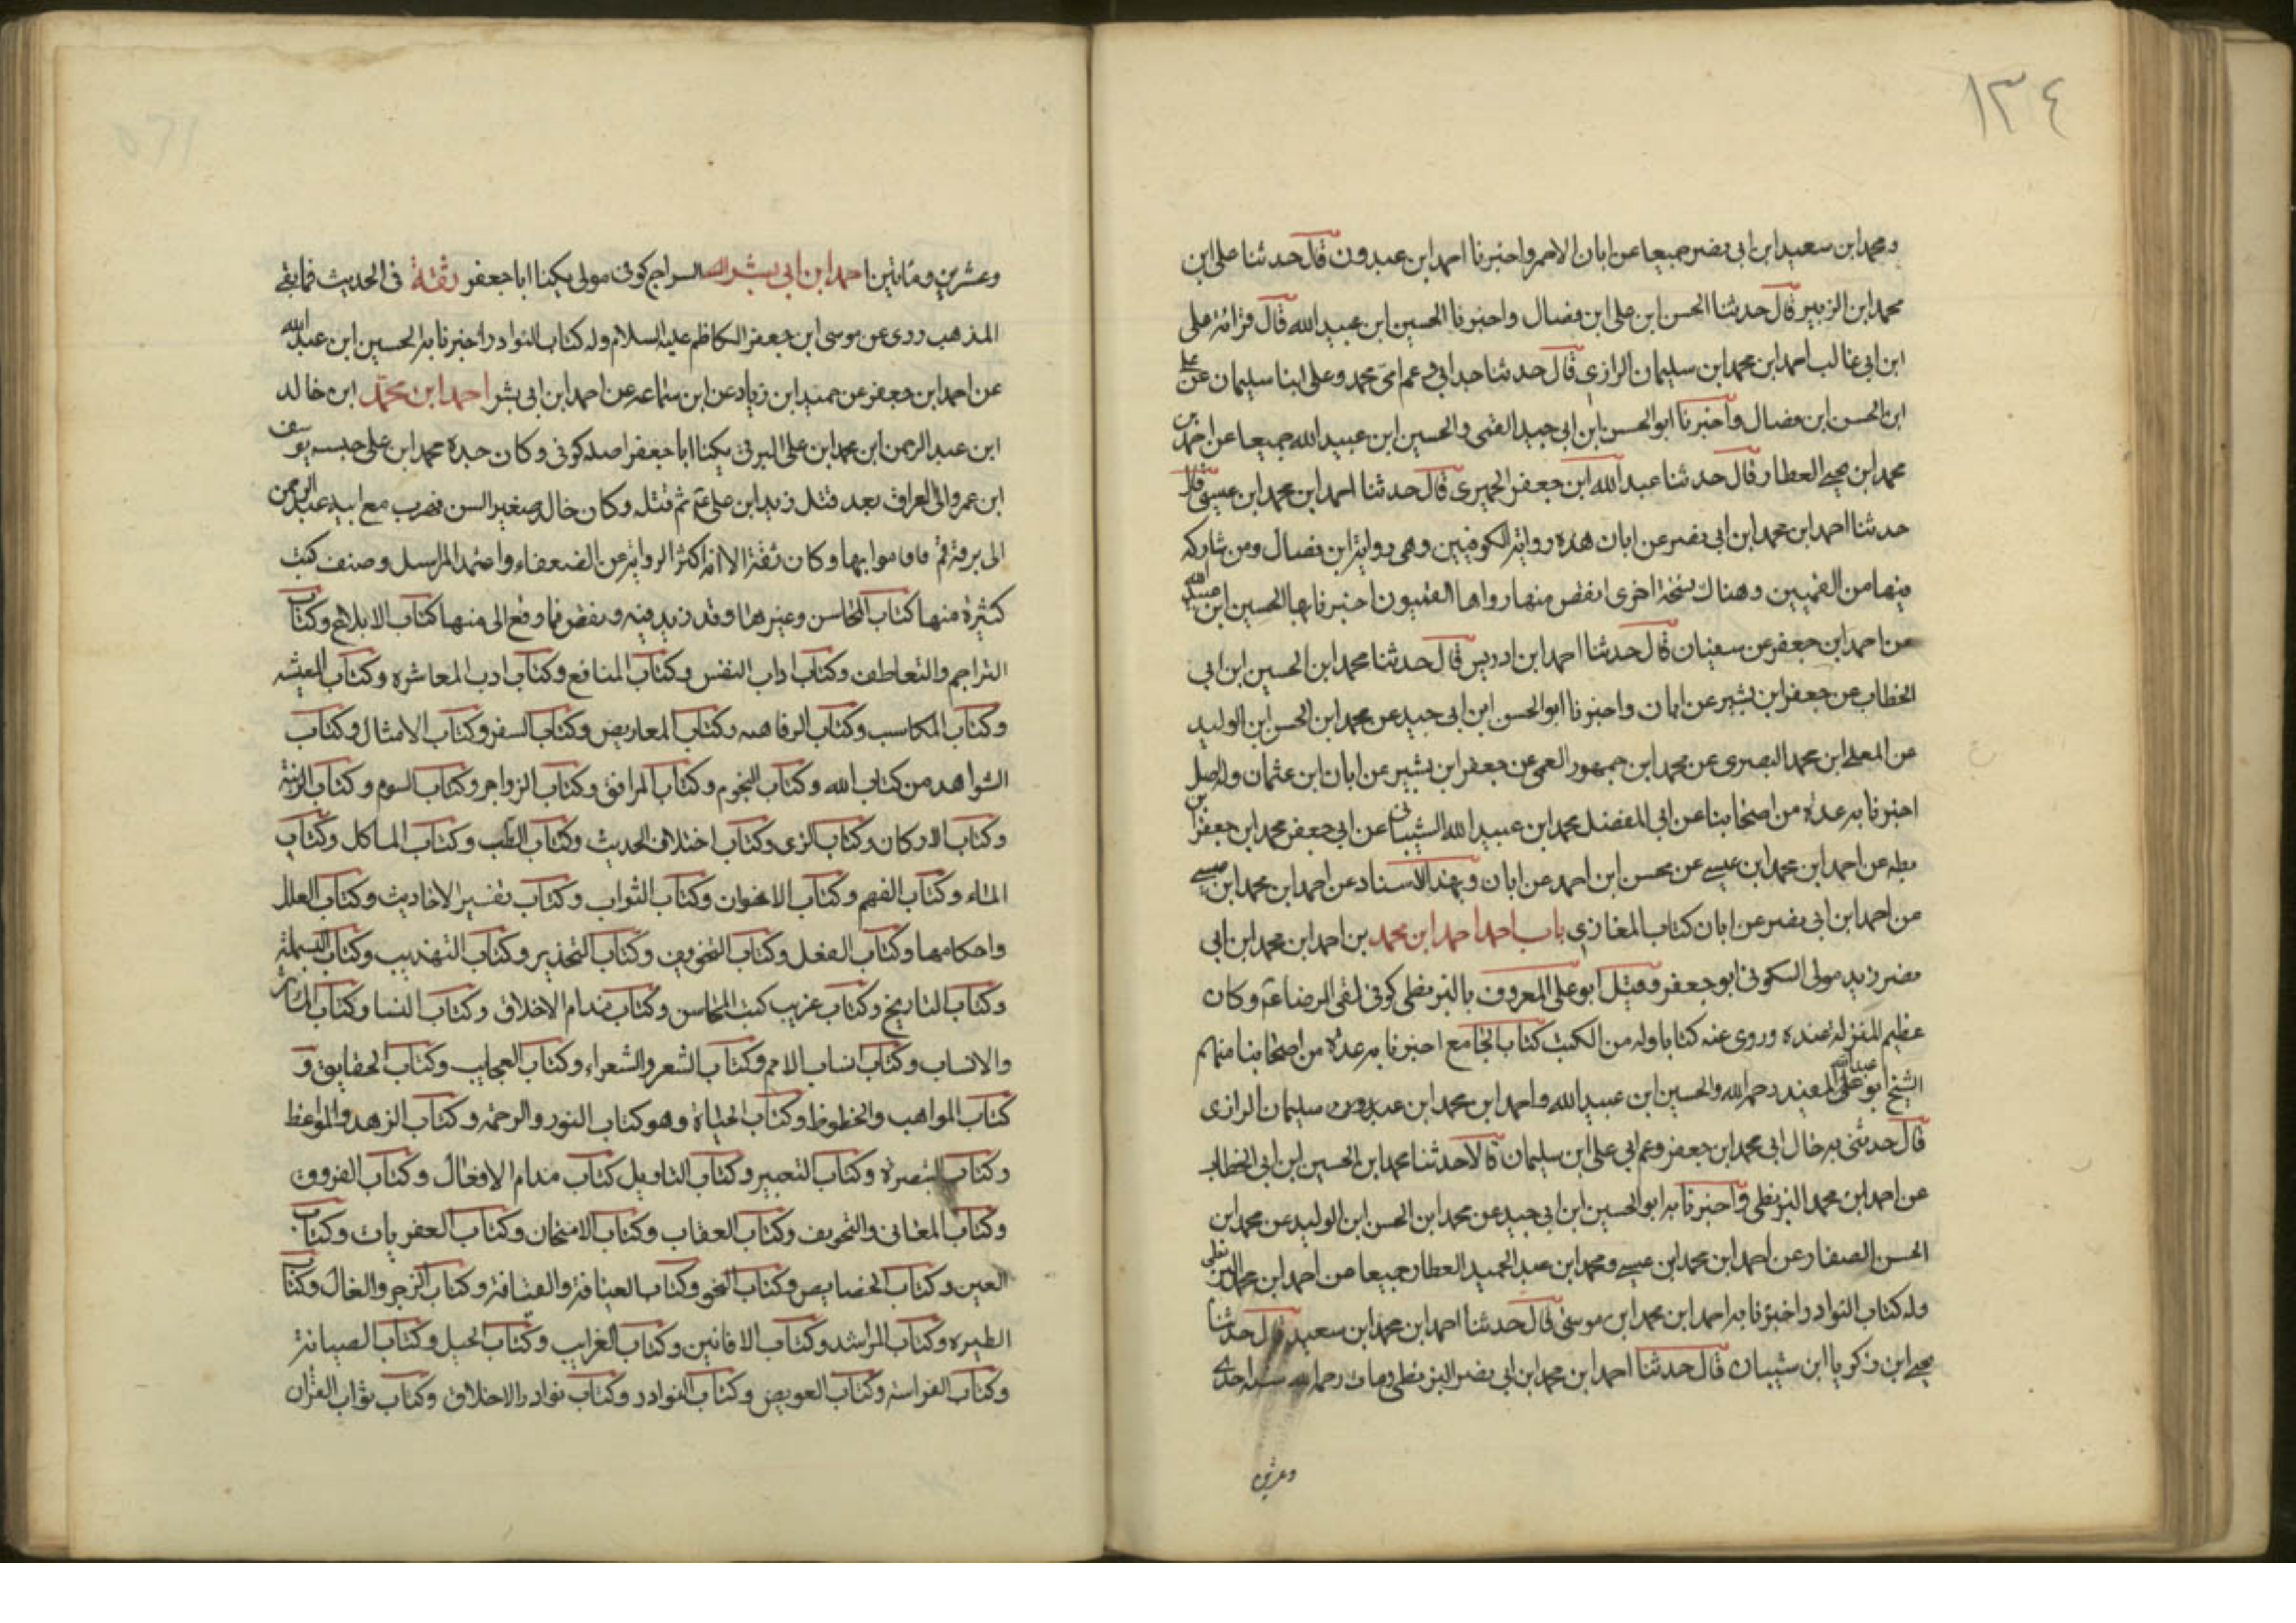 ١٣٤
ومحمد ابن سعيد ابن ابي نصر جميعا عن ابان الاحمر واخبرنا احمد ابن عبدون قال حدثنا على ابن
محمد ابن الزبير قال حدثنا الحسن ابن على ابن فضال واخبرنا الحسين ابن عبيد الله قال قرائة على
ابن ابي غالب احمد ابن محمد ابن سليمان الرازى قال حدثنا جد ابي وعم ابي محمد وعلى ابنا سليمان عن على
ابن الحسن ابن فضال واخبرنا ابو الحسن ابن ابي جيد القمى والحسين ابن عبيد الله جميعا عن احمد بن
محمد ابن يحيى العطار قال حدثنا عبد الله ابن جعفر الحميرى قال حدثنا احمد ابن محمد ابن عيسى قال
حدثنا احمد ابن محمد ابن ابي نصر عن ابان هذه رواية الكوفيين وهى رواية ابن فضال ومن شاركه
فيها من القميين وهناك نسخة اخرى انقص منها رواها القميون اخبرنا بها الحسين ابن عبيد الله
عن احمد ابن جعفر عن سفيان قال حدثنا احمد ابن ادريس قال حدثنا محمد ابن الحسين ابن ابي
الخطاب عن جعفر ابن بشير عن ابان واخبرنا ابو الحسن ابن ابي جيد عن محمد ابن الحسن ابن الوليد
عن المعلى ابن محمد البصرى عن محمد ابن جمهور العمى عن جعفر ابن بشير عن ابان ابن عثمان وله اصل
اخبرنا به عدة من اصحابنا عن ابي المفضل محمد ابن عبيد الله الشيبانى عن ابي جعفر محمد ابن جعفر ابن
بطه عن احمد ابن محمد ابن عيسى عن محسن ابن احمد عن ابان وبهذا الاسناد عن احمد ابن محمد ابن عيسى
عن احمد ابن ابي نصر عن ابان كتاب المغازى باب احمد احمد ابن محمد بن احمد ابن محمد ابن ابي
مضر زيد مولى السكونى ابو جعفر وقيل ابو على المعروف بالبزنطى كوفى لقى الرضا عم وكان
عظيم المنزلة عنده وروى عنه كتابا وله من الكتب كتاب الجامع اخبرنا به عدة من اصحابنا منهم
الشيخ ابو عبد الله المفيد رحمه الله والحسين ابن عبيد الله واحمد ابن محمد ابن عبدون سليمان الرازى
قال حدثنى به خال ابي محمد ابن جعفر وعم ابي على ابن سليمان قالا حدثنا محمد ابن الحسين ابن ابي الخطاب
عن احمد ابن محمد البزنطى واخبرنا به ابو الحسين ابن ابي جيد عن محمد ابن الحسن ابن الوليد عن محمد ابن
الحسن الصفار عن احمد ابن محمد ابن عيسى ومحمد ابن عبد الحميد العطار جميعا عن احمد ابن محمد البزنطى
وله كتاب النوادر اخبرنا به احمد ابن محمد ابن موسى قال حدثنا احمد ابن محمد ابن سعيد قال حدثنا
يحيى ابن زكريا ابن شيبان قال حدثنا احمد ابن محمد ابن ابي نصر البزنطى ومات رحمه الله سنه احدى
وعشرين
وعشرين ومأتين احمد ابن ابي بشر السراج كوفى مولى يكنا ابا جعفر ثقة فى الحديث فايقى
المذهب روى عن موسى ابن جعفر الكاظم عليه السلام وله كتاب النوادر اخبرنا به الحسين ابن عبد الله
عن احمد ابن جعفر عن حميد ابن زياد عن ابن سماعه عن احمد ابن ابي بشر احمد ابن محمد ابن خالد
ابن عبد الرحمن ابن محمد ابن على البرقى يكنا ابا جعفر اصله كوفى وكان جده محمد ابن على حبسه يوسف
ابن عمر والى العراق بعد قتل زيد ابن على عم ثم قتله وكان خالد صغير السن فهرب مع ابيه عبد الرحمن
الى برقة قم فاقاموا بها وكان ثقة الا انه اكثر الرواية عن الضعفاء واعتمد المراسل وصنف كتب
كثيرة منها كتاب المحاسن وغيرها وقد زيد فيه ونقص فما وقع الى منها كتاب الابلاغ وكتاب
التراجم والتعاطف وكتاب اداب النفس وكتاب المنافع وكتاب ادب المعاشره وكتاب المعيشه
وكتاب المكاسب وكتاب الرفاهيه وكتاب المعاريض وكتاب السفر وكتاب الامثال وكتاب
الشواهد من كتاب الله وكتاب النجوم وكتاب المرافق وكتاب الزواجر وكتاب السوم وكتاب الزينة
وكتاب الاركان وكتاب الزى وكتاب اختلاف الحديث وكتاب الطب وكتاب الماكل وكتاب
الماء وكتاب الفهم وكتاب الاخوان وكتاب الثواب وكتاب تفسير الاحاديث وكتاب العلل
واحكامها وكتاب العقل وكتاب التخويف وكتاب التحذير وكتاب التهذيب وكتاب التسلية
وكتاب التاريخ وكتاب غريب كتب المحاسن وكتاب مذام الاخلاق وكتاب النسا وكتاب المآثر
والانساب وكتاب انساب الامم وكتاب الشعر والشعراء وكتاب العجايب وكتاب الحقايق و
كتاب المواهب والحظوظ وكتاب الحياة وهو كتاب النور والرحمة وكتاب الزهد والمواعظ
وكتاب التبصرة وكتاب التعبير وكتاب التاويل كتاب مذام الافعال وكتاب الفروق
وكتاب المعانى والتحريف وكتاب العقاب وكتاب الامتحان وكتاب العقربات وكتاب
العين وكتاب الخصايص وكتاب النحو وكتاب العيافة والقيافة وكتاب الزجر والفال وكتاب
الطيره وكتاب المراشد وكتاب الافانين وكتاب الغرايب وكتاب الحيل وكتاب الصيانة
وكتاب الفراسة وكتاب العويص وكتاب النوادر وكتاب نوادر الاخلاق وكتاب ثواب القران